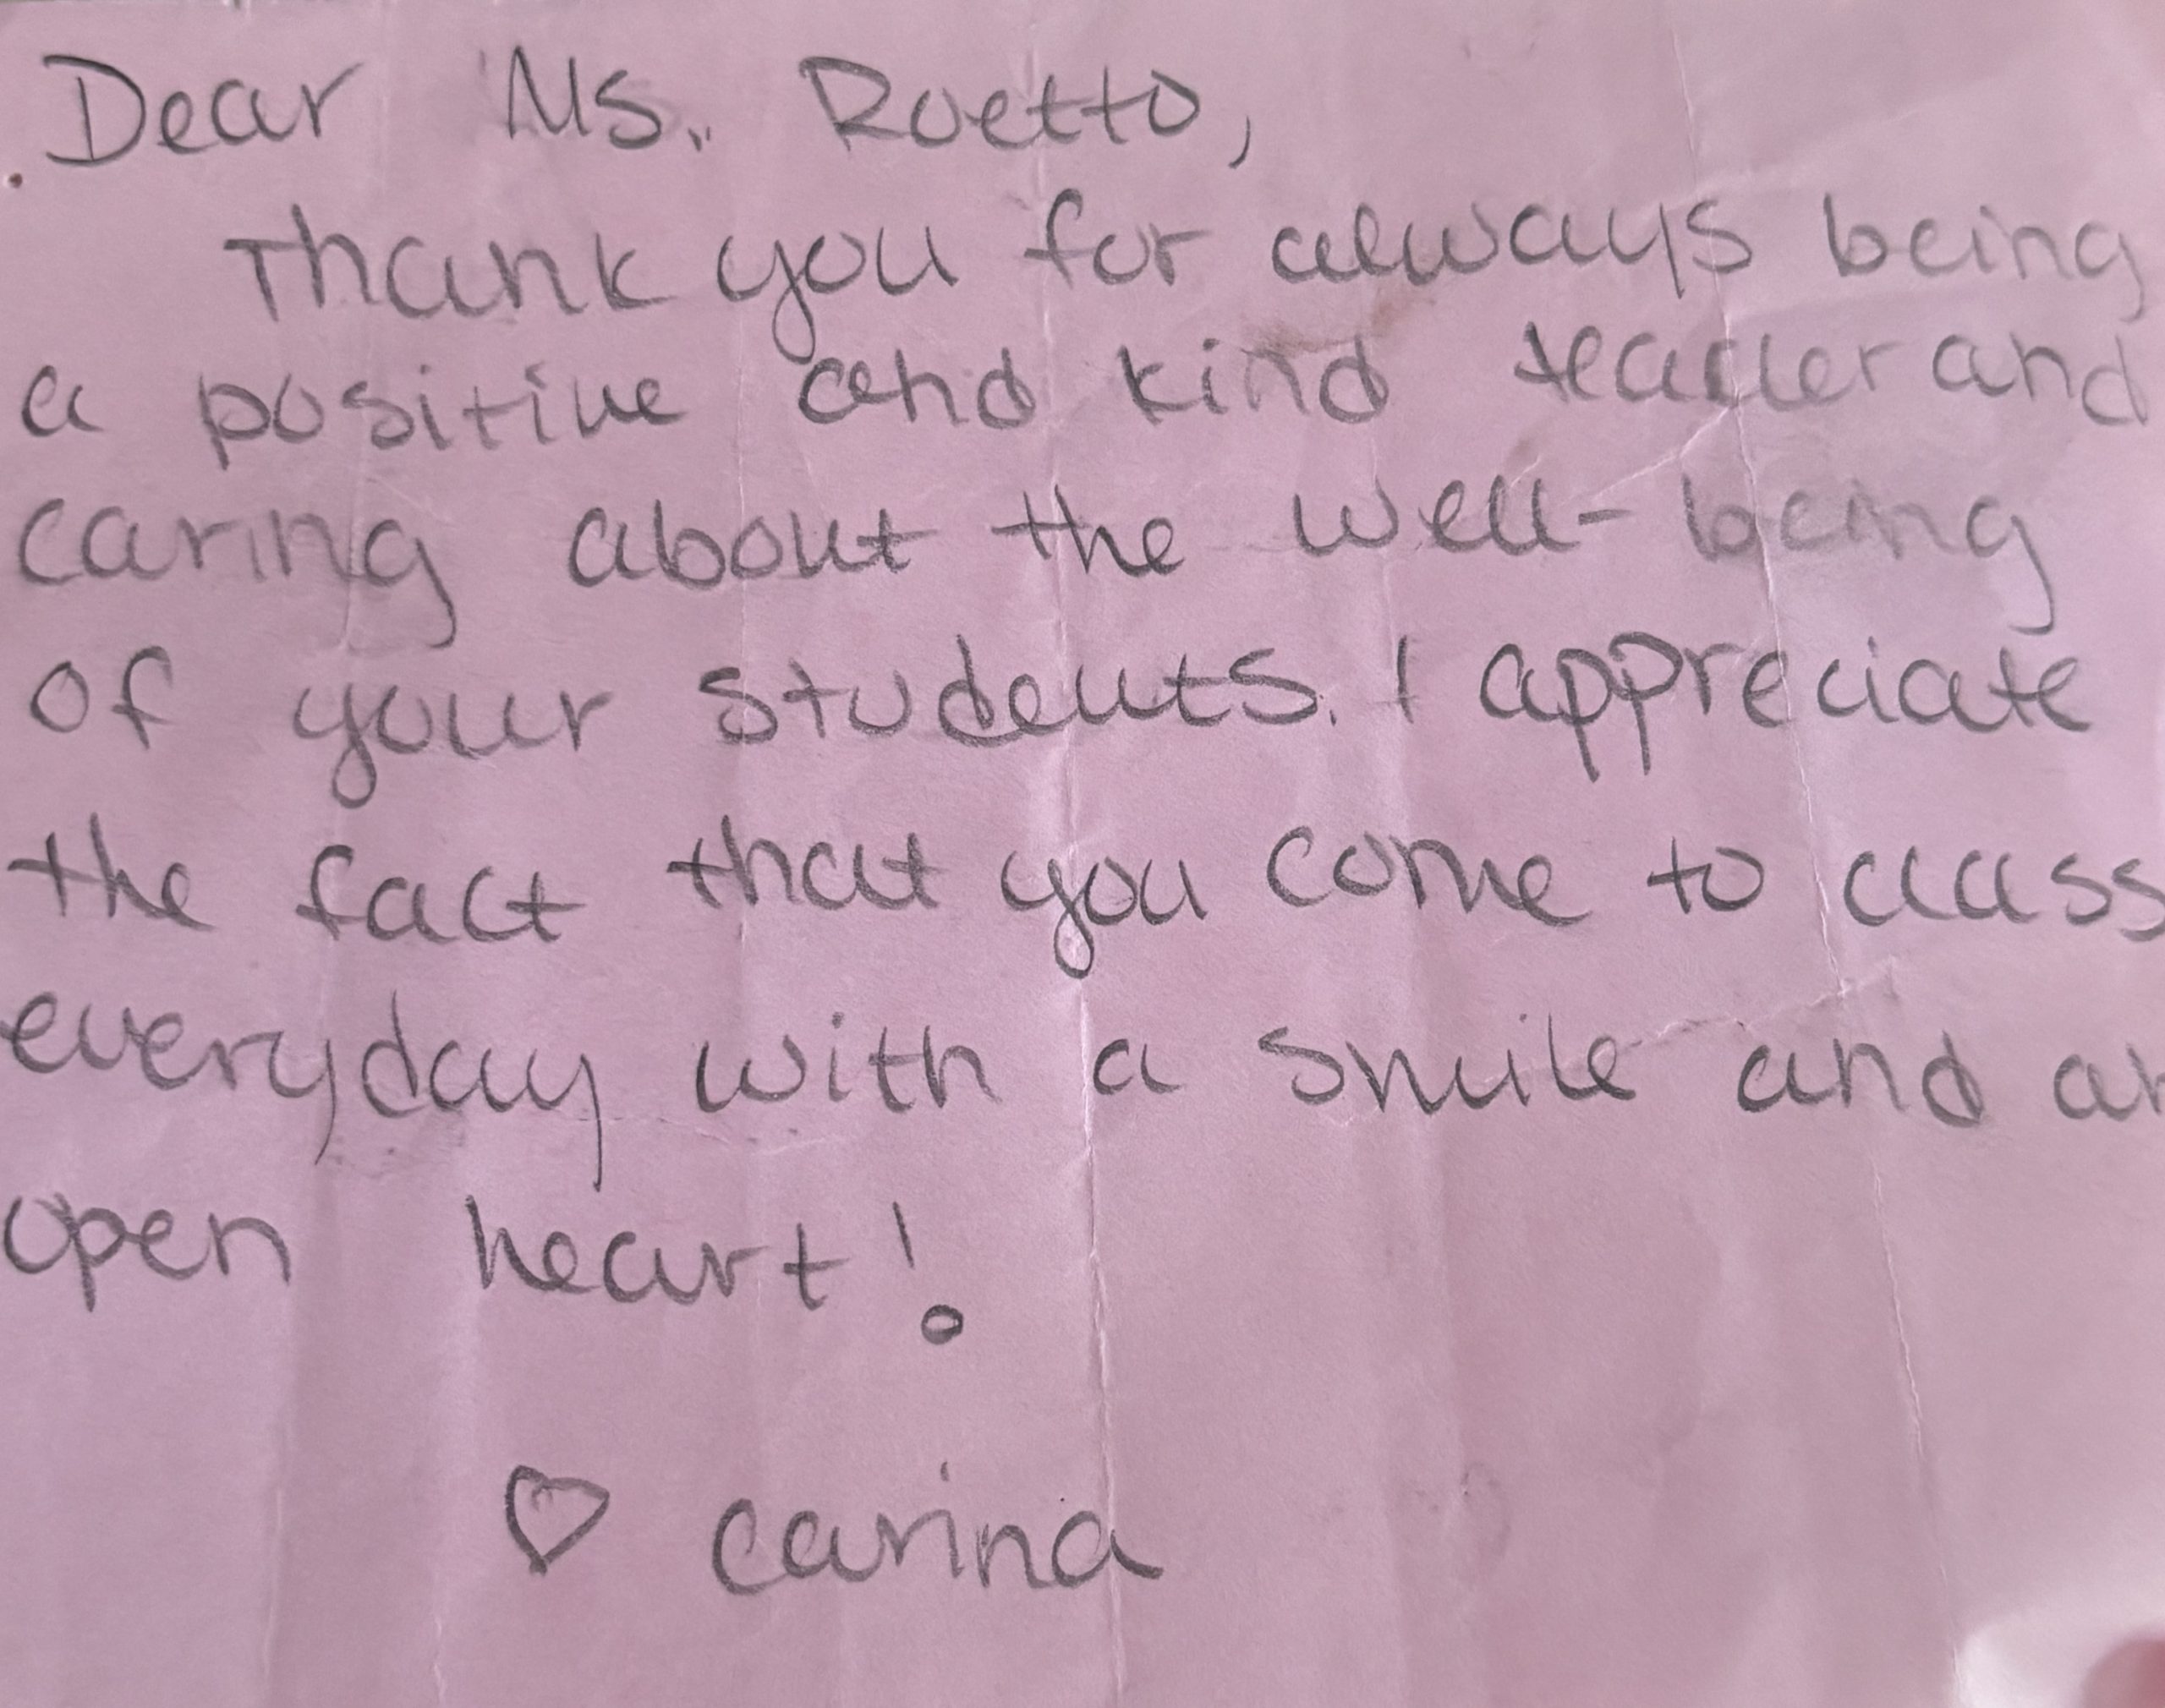 Dear Ms. Ruetto,
Thank you for always being
a positive and kind teacher and
caring about the well-being
of your students. I appreciate
the fact that you come to class
everyday with a smile and an
open heart!
♡ carina